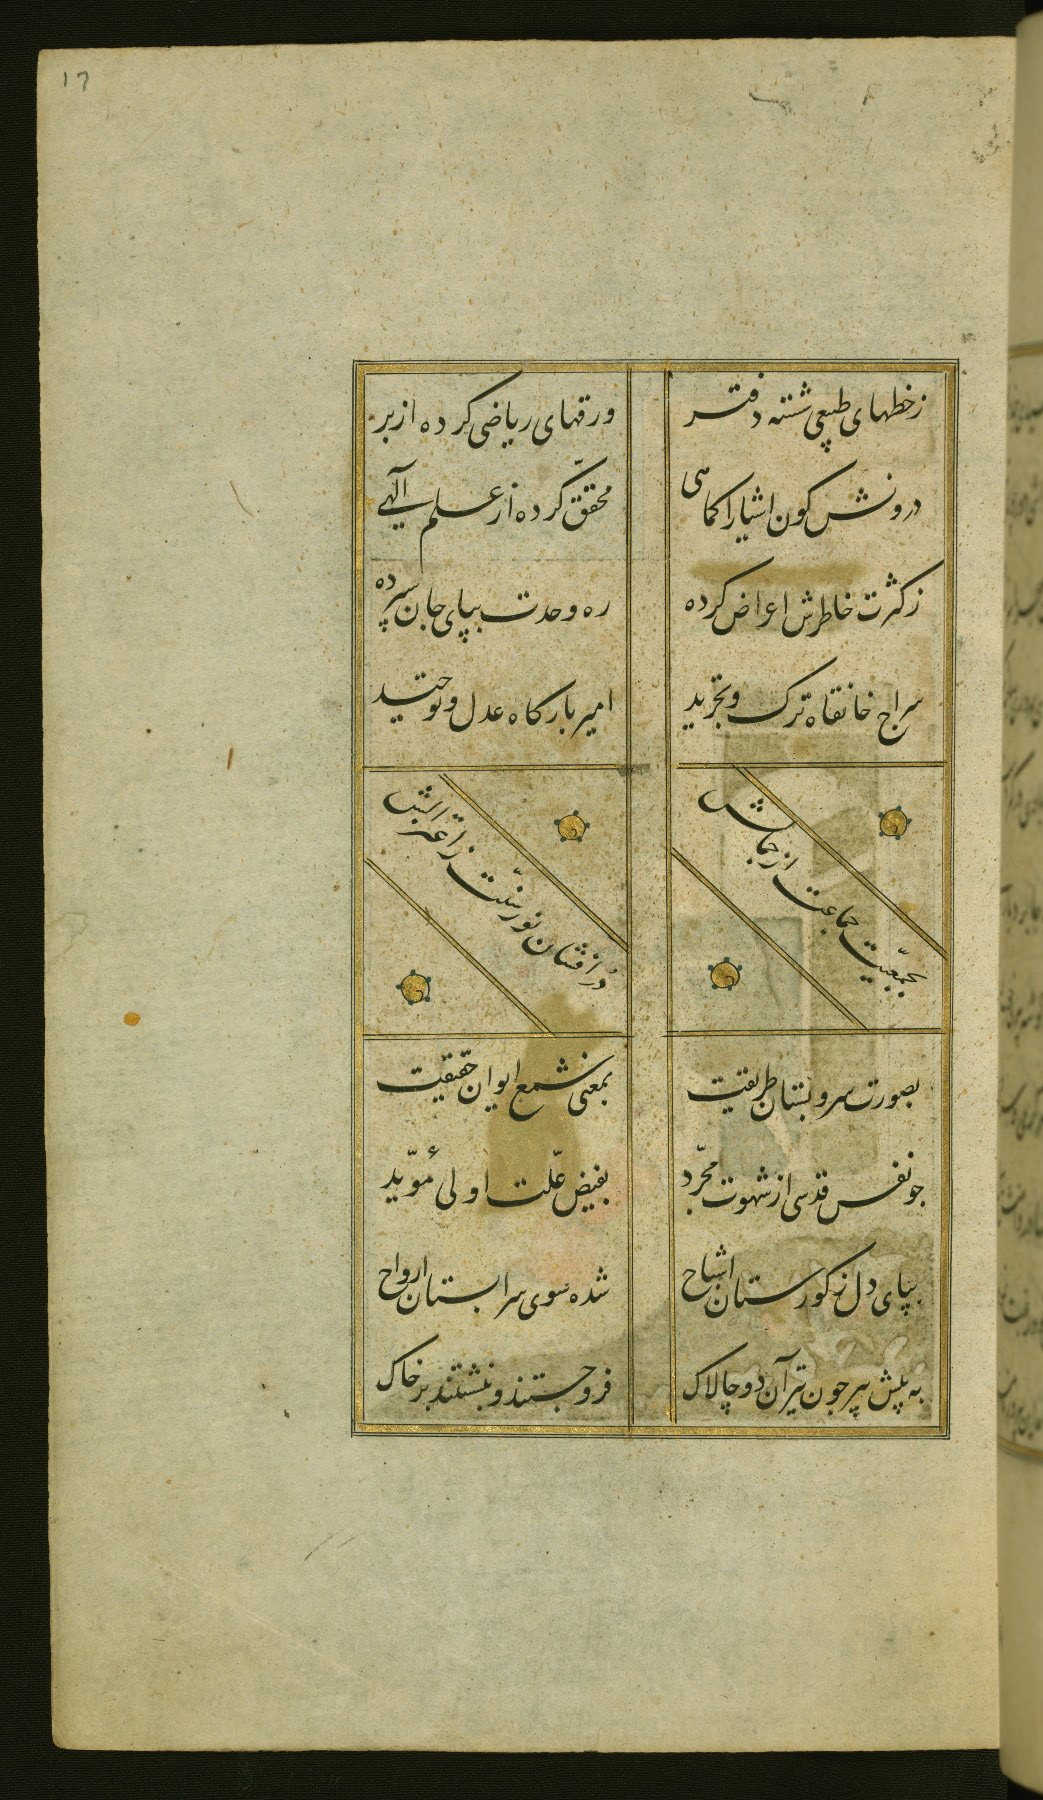 17
زخطهای طبیعی شسته دفتر
ورقهای ریاضی کرده از بر
درونش کون اشیا را کماهی
محقّق کرده از علم الٓهی
زکثرت خاطرش اعراض کرده
ره وحدت بپای جان سپرده
سراج خانقاه ترک و تجرید
امیر بارکاه عدل و توحید
بجمعیّت جماعت از جماش
در افشان نور سنّت
بصورت سرو بستان طریقت
بمعنی شمع ایوان حقیقت
جو نفس قدسی از شهوت مجرّد
بفیض علّت اولیٰ مؤیّد
بپای دل ز کورستان اشباح
شده سوی سرابستان ارواح
به پیش پیر جون تیر آن دو چالاک
فرو جستند و بنشستند بر خاک